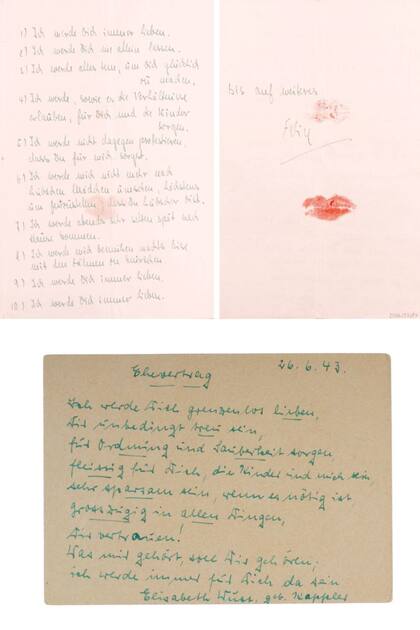 1) Ich werde Dich immer lieben.
2) Ich werde Dich nie allein lassen.
3) Ich werde alles tun, um Dich glücklich
zu machen.
4) Ich werde, sowie es die Verhältnisse
erlauben, für Dich und die Kinder
sorgen.
5) Ich werde nicht dagegen protestieren,
dass Du für mich sorgst.
6) Ich werde mich nicht mehr nach
hübschen Mädchen umsehen, höchstens
um festzustellen, dass Du hübscher bist.
7) Ich werde abends sehr selten spät nach
Hause kommen.
8) Ich werde mich bemühen nachts leise
mit den Zähnen zu knirschen.
9) Ich werde Dich immer lieben.
10) Ich werde Dich immer lieben.
bis auf weiteres
Felix
Ehevertrag
26.6.43.
Ich werde Dich grenzenlos lieben,
Dir unbedingt treu sein,
für Ordnung und Sauberkeit sorgen
fleissig für Dich, die Kinder und mich sein,
sehr sparsam sein, wenn es nötig ist
grosszügig in allen Dingen,
Dir vertrauen!
Was mir gehört, soll Dir gehören;
ich werde immer für Dich da sein
Elisabeth Wust, geb. Kappler